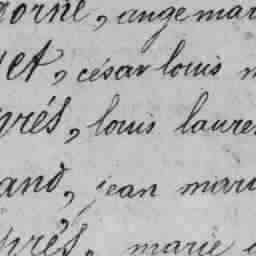 orne, ange mar
et, césar louis m
prés, louis laure
and, jean mari
près, marie